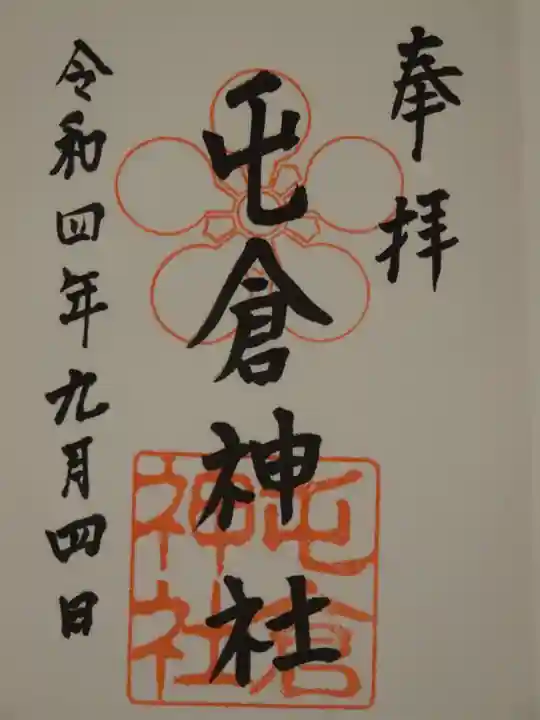 奉拝
屯倉神社
屯倉
神社
令和四年九月四日